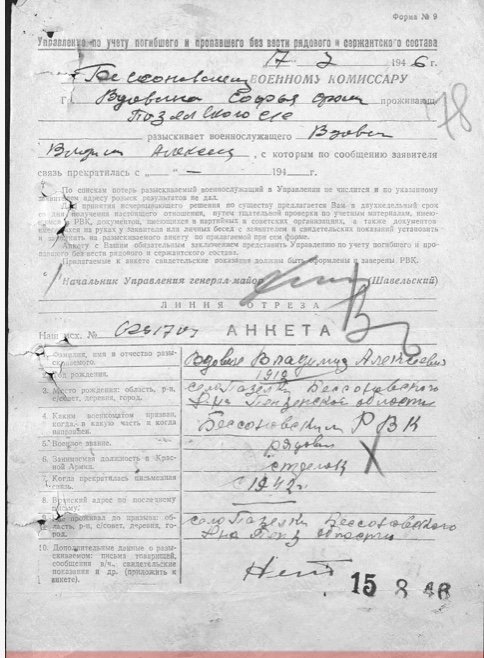 Форма № 9
Управление по учету погибшего и пропавшего без вести рядового и сержантского состава
17 3 1946 г.
Бессоновскому ВОЕННОМУ КОМИССАРУ
Гр. Вдовина Софья проживающ
78
разыскивает военнослужащего Вдовин
Алексеев, с которым по сообщению заявителя
связь прекратилась с „ — “ 194 г.
По спискам потерь разыскиваемый военнослужащий в Управлении не числится и по указанному
адресу розыск результатов не дал.
Для принятия исчерпывающего решения по существу предлагается Вам в двухнедельный срок
со дня получения настоящего отношения, путем тщательной проверки по учетным материалам, имею-
РВК, документов, имеющихся в партийных и советских организациях, а также документов
на руках у заявителя или личных бесед с заявителем и свидетельских показаний установить
и заполнить на разыскиваемого анкету по прилагаемой при сем форме.
Анкету с Вашим обязательным заключением представить Управлению по учету погибшего и про-
павшего без вести рядового и сержантского состава.
Прилагаемые к анкете свидетельские показания должны быть оформлены и заверены РВК.
Начальник Управления генерал-майор (Шавельский)
ЛИНИЯ ОТРЕЗА
Наш исх. № АНКЕТА
1. Фамилия, имя и отчество разы-
скиваемого. Вдовин Владимир Алексеевич
рождения. 1912
3. Место рождения: область, р-н, село Пазелки Бессоновского
с/совет, деревня, город. р-на Пензенской области
4. Каким военкоматом призван,
когда, в какую часть и когда
направлен. Бессоновским РВК
5. Военное звание. рядовой
6. Занимаемая должность в Крас-
ной Армии. стрелок
7. Когда прекратилась письменная
связь. с 1942 г
8. Воинский адрес по последнему
письму: —
9. Где проживал до призыва: об-
ласть, р-н, с/совет, деревня, го-
род. село Пазелки Бессоновского
р-на Пенз области
10. Дополнительные данные о разы-
скиваемом: письма товарищей,
сообщения в/ч, свидетельские
показания и др. (приложить к
анкете). Нет
15 8 46